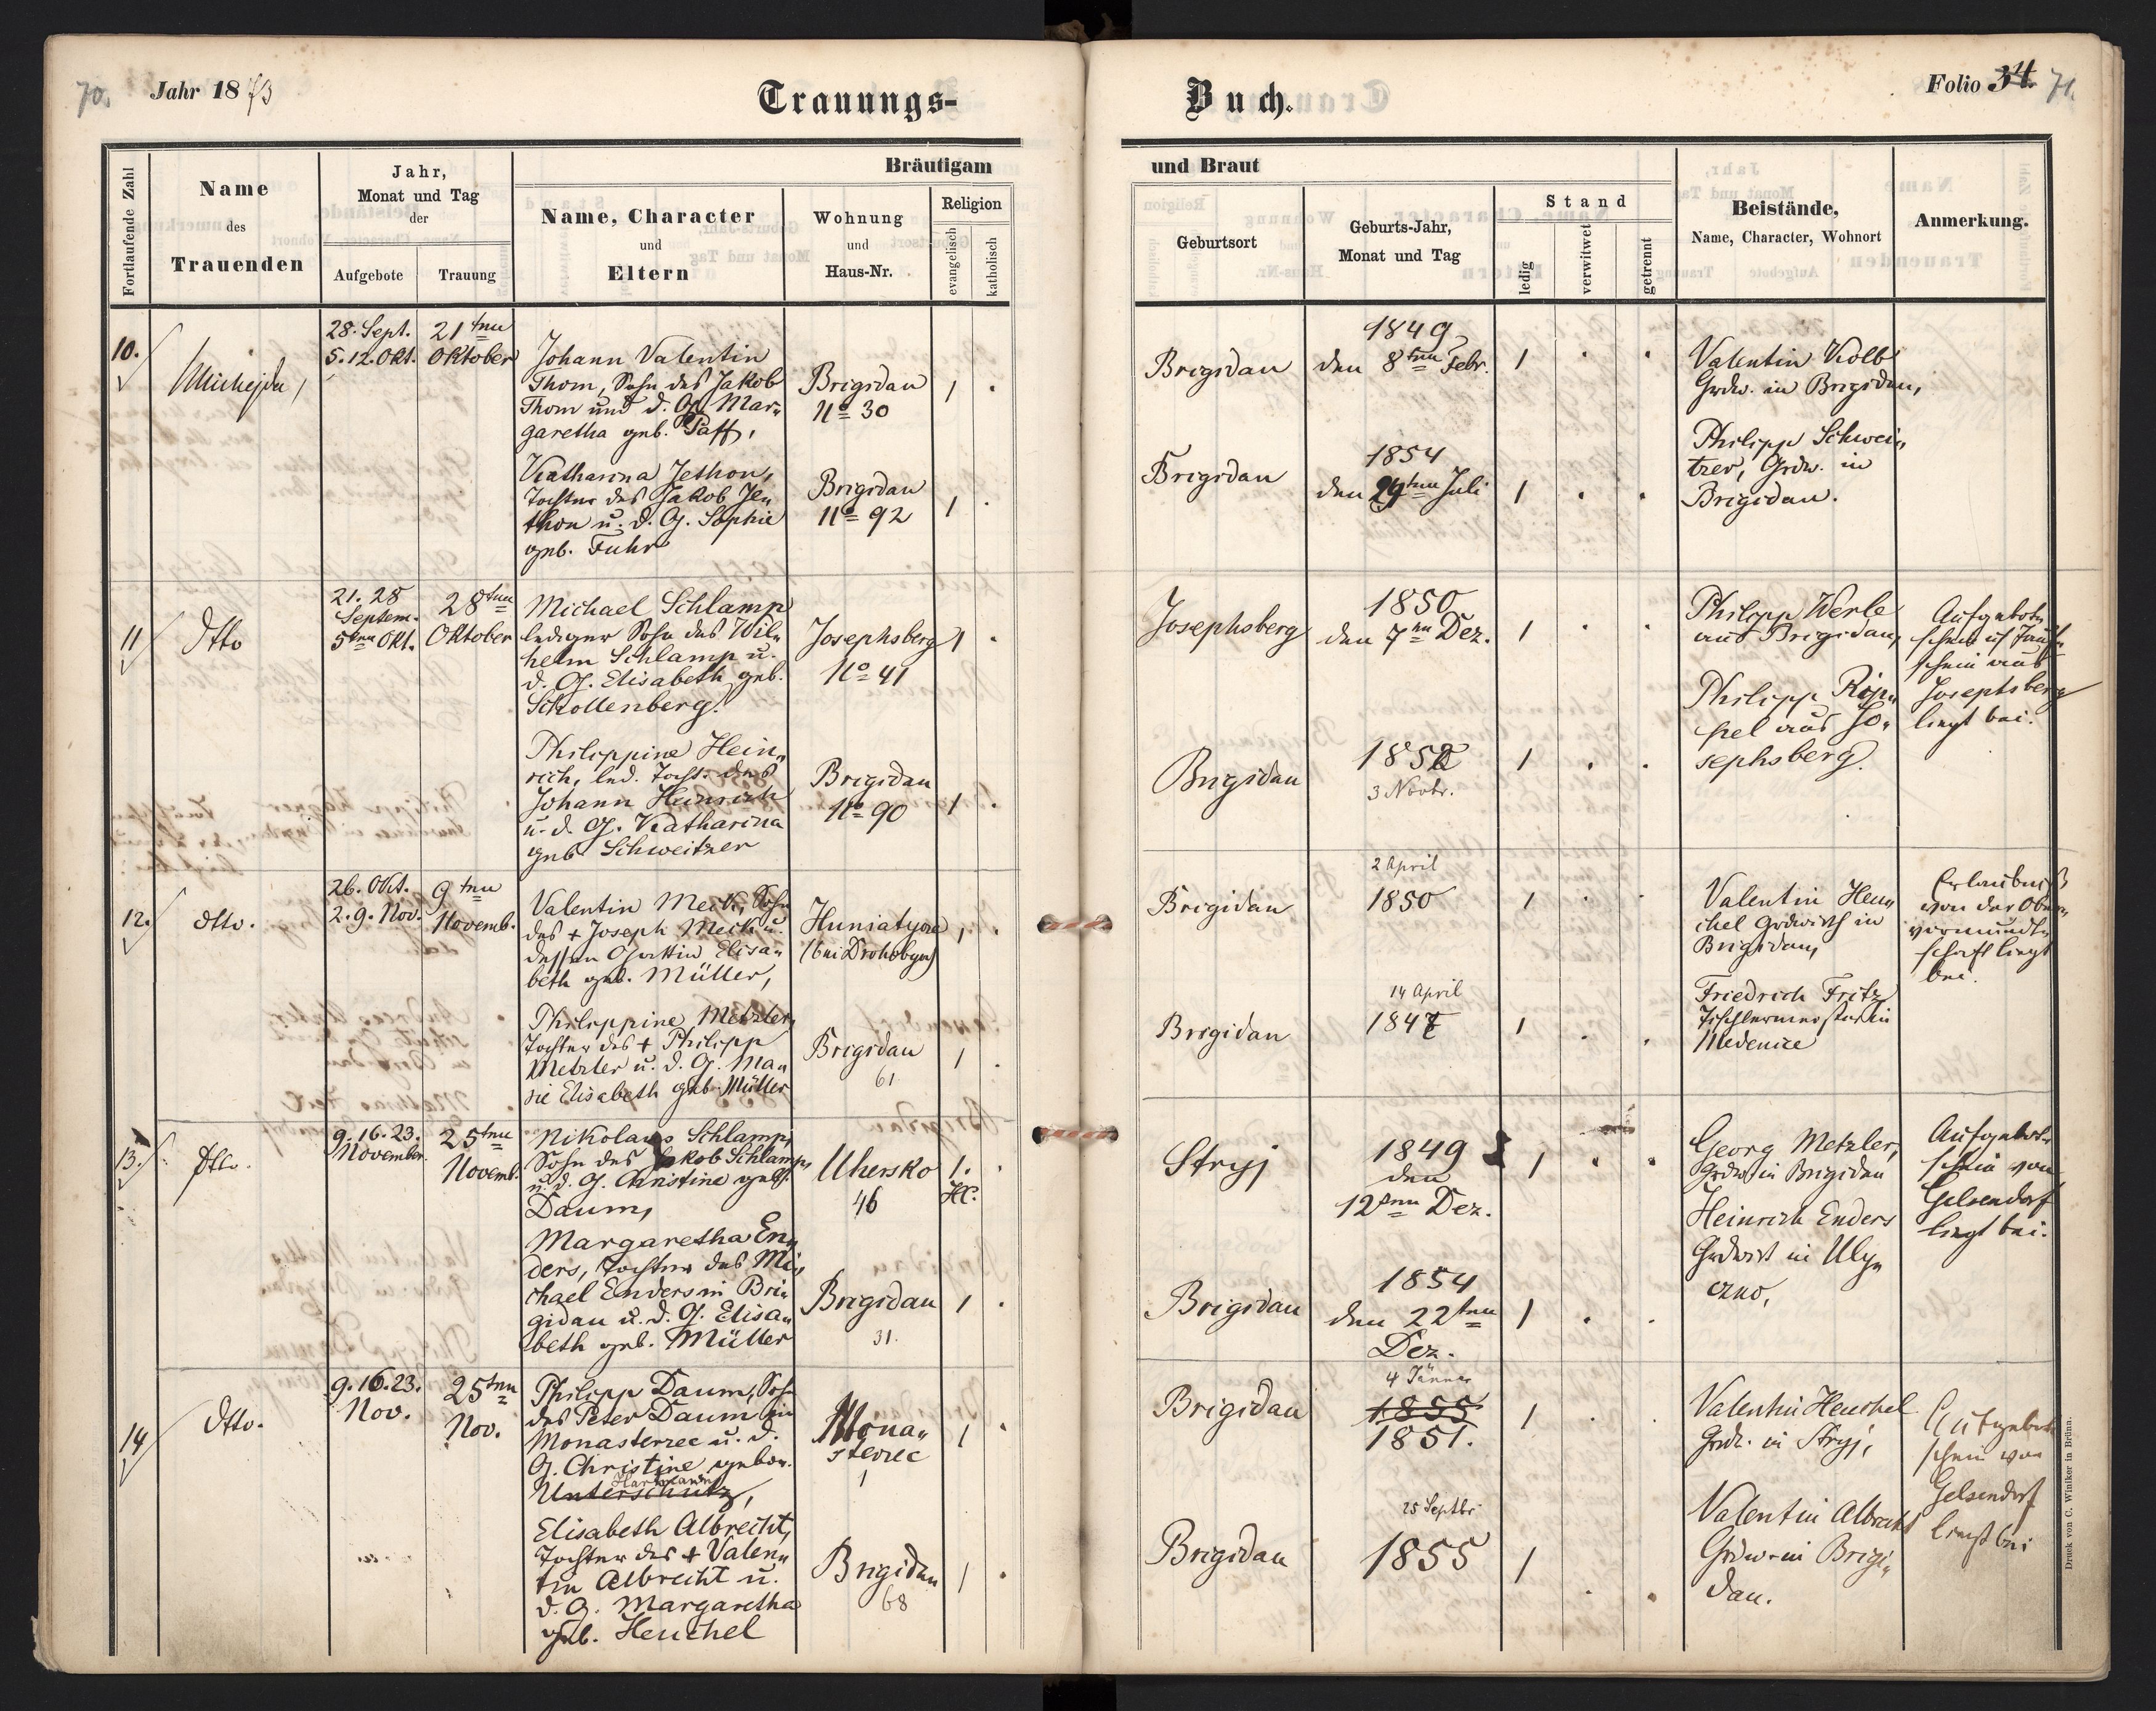 70.
Jahr 1873
Trauungs-
Buch.
Folio 34. 71.
Fortlaufende Zahl
Name
des
Trauenden
Jahr,
Monat und Tag
der
Aufgebote
Trauung
Bräutigam
Name, Character
und
Eltern
Wohnung
und
Haus-Nr.
Religion
evangelisch
katholisch
und Braut
Geburtsort
Geburts-Jahr,
Monat und Tag
Stand
ledig
verwitwet
getrennt
Beistände,
Name, Character, Wohnort
Anmerkung.
10.
Michejda,
28. Sept.
5. 12. Okt.
21ten
Oktober
Johann Valentin
Thom, Sohn des Jakob
Thom und d. G. Mar„
garetha geb. Paff,
Brigidau
No 30
1 .
Brigidau
1849
den 8ten Febr.
1 . .
Valentin Kolb
Grdw. in Brigidau,
Katharina Jethon,
Tochter des Jakob Je„
thon u. d. G. Sophie
geb. Fuhr
Brigidau
No 92
1 .
Brigidau
1854
den 29ten Juli
1 . .
Philipp Schwei„
tzer, Grdw. in
Brigidau.
11
Dtto
21. 28
Septem.
5ten Okt.
28ten
Oktober
Michael Schlamp
lediger Sohn des Wil„
helm Schlamp u.
d. G. Elisabeth geb.
Schollenberg.
Josephsberg
No 41
1 .
Josephsberg
1850
den 7ten Dez.
1 . .
Philipp Werle
aus Brigidau,
Philipp Rip„
pel aus Jo„
sephsberg.
Aufgebots
schein u. Tauf„
schein aus
Josephsberg
liegt bei.
Philippine Hein„
rich, led. Tocht. des
Johann Heinrich
u. d. G. Katharina
geb. Schweitzer
Brigidau
No 90
1 .
Brigidau
1852
3 Novbr.
1 . .
12.
dtto.
26. Okt.
2. 9. Nov.
9ten
Novemb.
Valentin Meck, Sohn
des + Joseph Meck u.
dessen Gattin Elisa„
beth geb. Müller,
Huniatycze
(bei Drohobycz)
1 .
Brigidau
2 April
1850
1 . .
Valentin Hen„
chel Grdwirth in
Brigidau,
Erlaubniß
von der Ober„
vormund„
schaft liegt
bei.
Philippine Metzler,
Tochter des + Philipp
Metzler u. d. G. Ma„
rie Elisabeth geb. Müller
Brigidau
61
1 .
Brigidau
14 April
1847
1 . .
Friedrich Fritz
Tischlermeister in
Medenice
13.
Dtto.
9. 16. 23.
November.
25ten
Novemb.
Nikolaus Schlamp,
Sohn des Jakob Schlamp,
u. d. G. Christine geb.
Daum,
Uhersko
46
1. .
HC.
Stryj
1849
den
12ten Dez.
1 . .
Georg Metzler,
Grdw. in Brigidau
Heinrich Enders
Grdwirt in Uly„
czno,
Aufgebot„
schein von
Gelsendorf
liegt bei.
Margaretha En„
ders, Tochter des Mi„
chael Enders in Bri„
gidau u. d. G. Elisa„
beth geb. Müller
Brigidau
31.
1 .
Brigidau
1854
den 22ten
Dez.
1 . .
14
Dtto.
9. 16. 23.
Nov.
25ten
Nov.
Philipp Daum, Sohn
des Peter Daum in
Monasterzec u. d.
G. Christine gebor.
Hartmann
Unterschütz,
Mona„
sterzec
1
1 .
Brigidau
4 Jänner
1855
1851.
1 . .
Valentin Henchel
Grdw. in Stryj,
Aufgebots
schein von
Gelsendorf
liegt bei
Elisabeth Albrecht,
Tochter des + Valen„
tin Albrecht u.
d. G. Margaretha
geb. Henchel
Brigidau
68
1 .
Brigidau
25 Septbr
1855
1 . .
Valentin Albrecht
Grdw. in Brigi„
dau.
Druck von C. Winiker in Brünn.